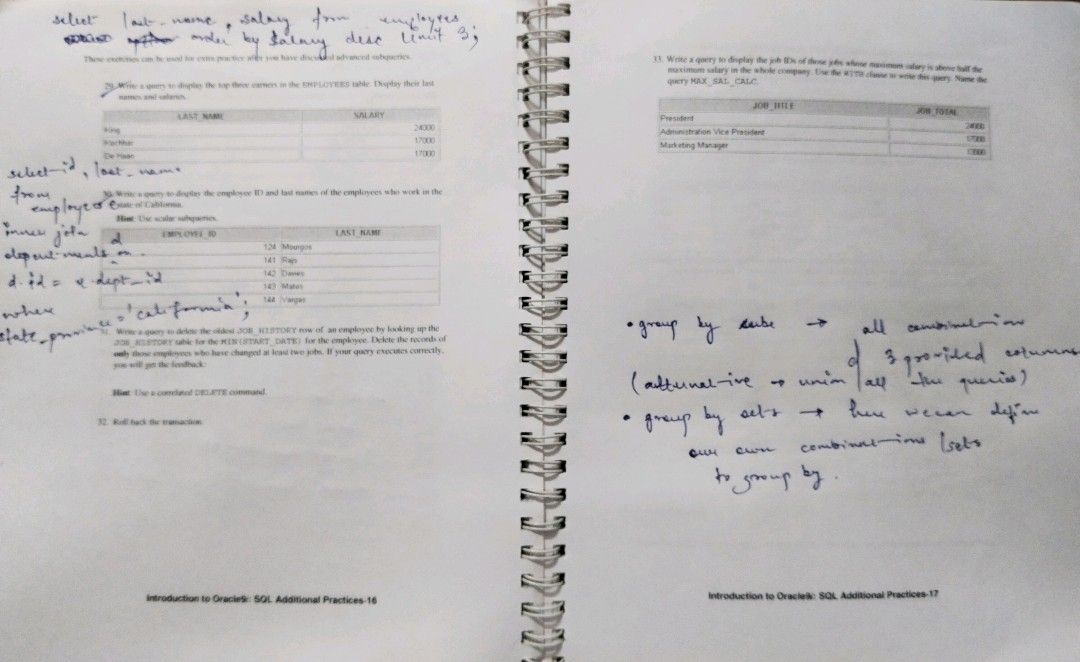 select last_name, salary from employees
order by salary desc limit 3;
These exercises can be used for extra practice after you have discussed advanced subqueries.
29. Write a query to display the top three earners in the EMPLOYEES table. Display their last
names and salaries.
LAST_NAME SALARY
King 24000
Kochhar 17000
De Haan 17000
select id, last_name
from
employees e
inner join
departments d on
d.id = e.dept_id
where
state_province = 'california';
30. Write a query to display the employee ID and last names of the employees who work in the
state of California.
Hint: Use scalar subqueries.
EMPLOYEE_ID LAST_NAME
124 Mourgos
141 Rajs
142 Davies
143 Matos
144 Vargas
31. Write a query to delete the oldest JOB_HISTORY row of an employee by looking up the
JOB_HISTORY table for the MIN(START_DATE) for the employee. Delete the records of
only those employees who have changed at least two jobs. If your query executes correctly,
you will get the feedback:
Hint: Use a correlated DELETE command.
32. Roll back the transaction.
Introduction to Oracle9i: SQL Additional Practices-16
33. Write a query to display the job IDs of those jobs whose maximum salary is above half the
maximum salary in the whole company. Use the WITH clause to write this query. Name the
query MAX_SAL_CALC.
JOB_TITLE JOB_TOTAL
President 24000
Administration Vice President 17000
Marketing Manager 13000
• group by cube → all combination
of 3 provided columns
(alternative → union all the queries)
• group by sets → here we can define
our own combinations /sets
to group by.
Introduction to Oracle9i: SQL Additional Practices-17